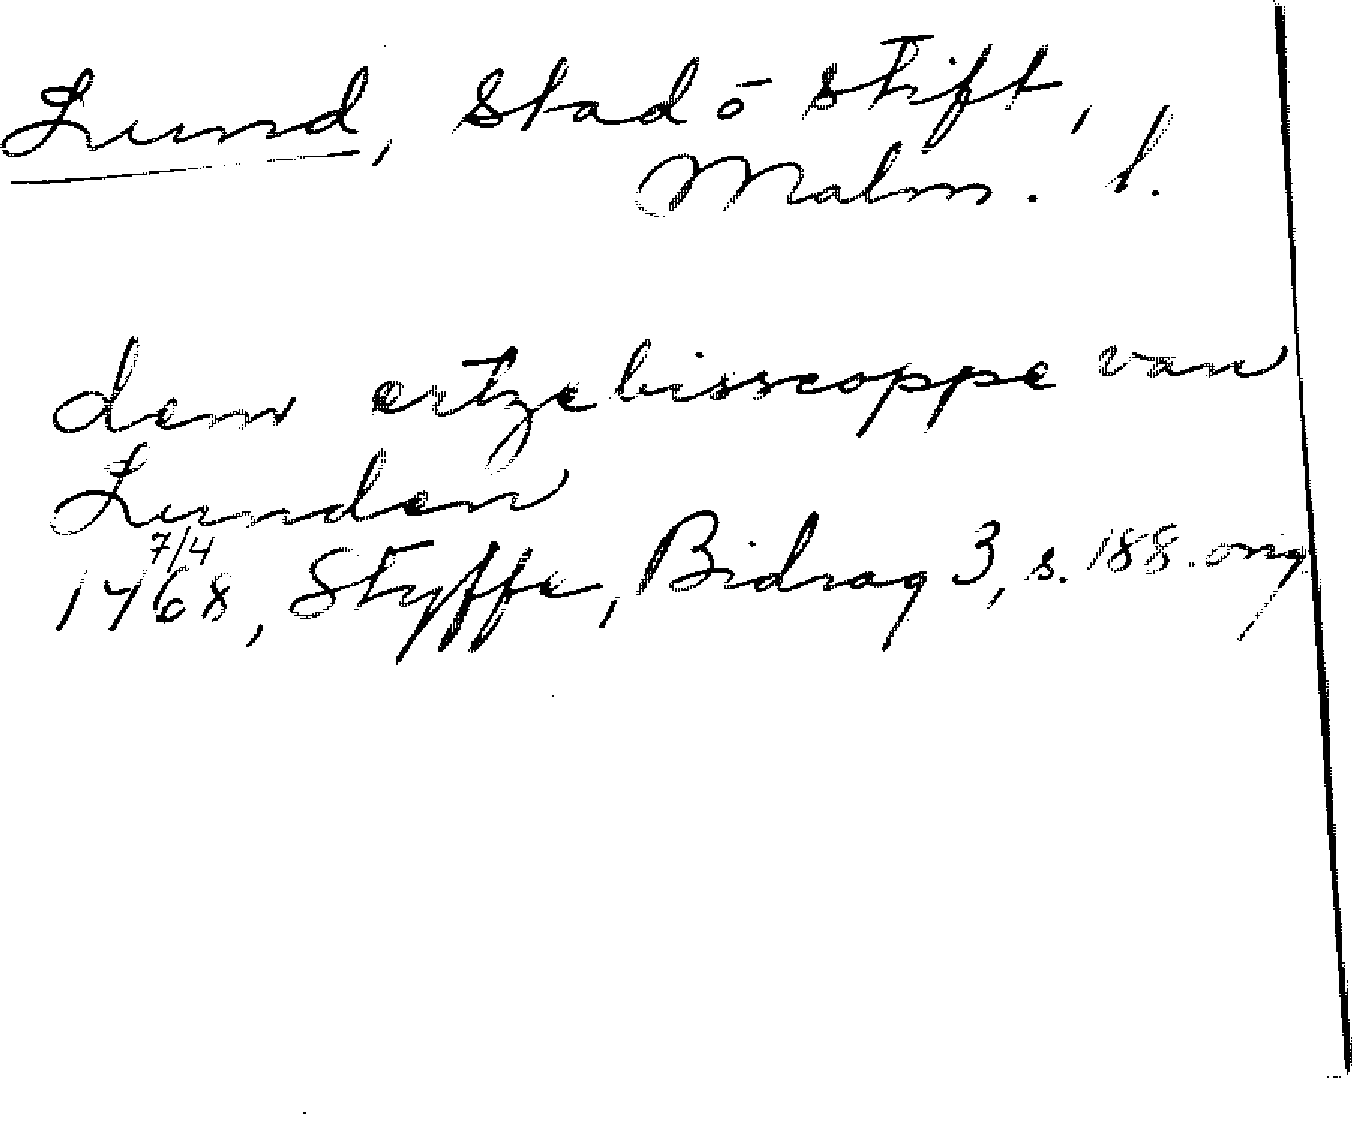 Lund, stad o stift,
Malm. l.
dem ertzebisscoppe van
Lunden
7/4
1468, Styffe, Bidrag 3, s. 188. orig